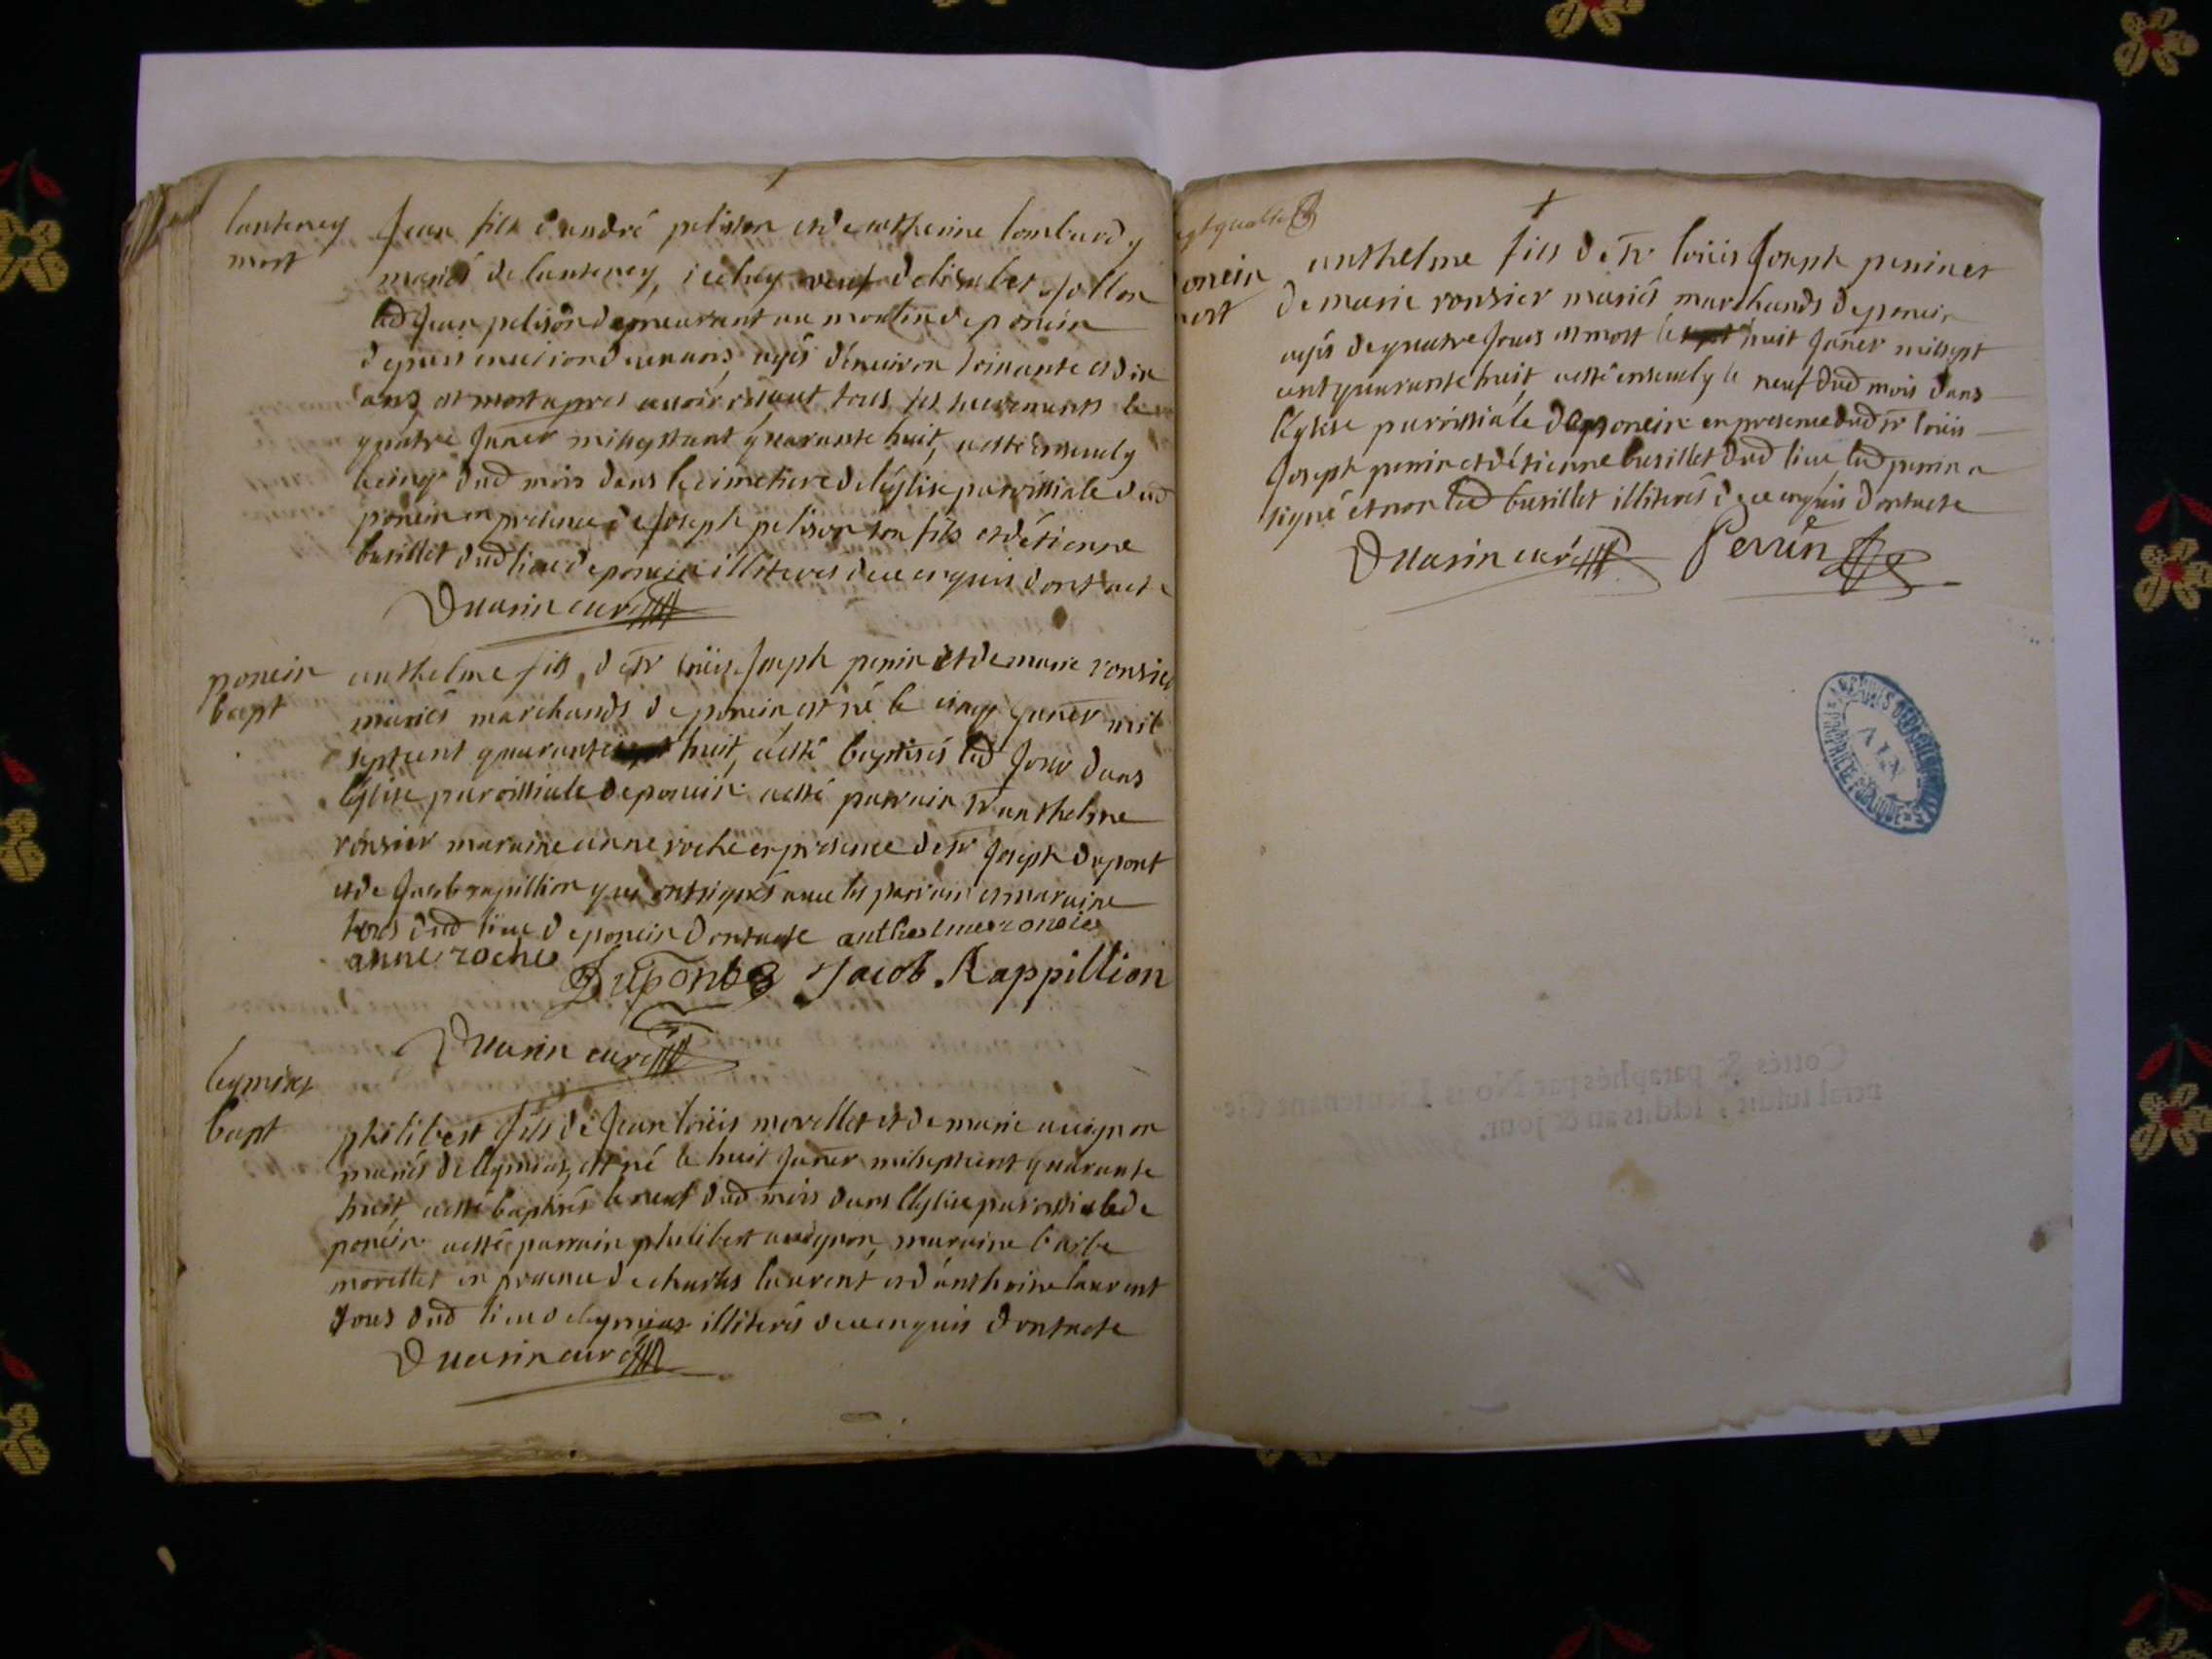 lanteney
mort
Jean fils d'andré pelisson et de catherine lombard
mariés de lanteney, iceluy veuf delisabet
led Jean pelison demeurant au moulin de poncin
depuis environ deux ans, agés d'environ soixante et dix
ans est mort apres avoir receut tous ses sacrements le
quatre Janer mil septcent quarante huit, a esté ensevely
le cinq dud mois dans le cimetiere de leglise parroissiale dud
poncin en presence de Joseph pelison son fils et détienne
busillet dud lieu de poncin illiteres de ce enquis dont acte
Duarin curé
poncin
bapt
anthelme fils de sr loüis Joseph perrin et de marie ronsier
mariés marchands de poncin est né le cinq Janer mil
septcent quarante huit, a esté baptisés led Jour dans
léglise paroissiale de poncin a esté parrain sr anthelme
ronsier maraine anne roche en presence de sr Joseph dupont
et de Jacob rapillion qui ont signés avec les parrain et maraine
tous dud lieu de poncin dont acte anthelme ronsier
anne roche Dupont Jacob Rappillion
Duarin curé
leymiat
bapt
philibert fils de Jean loüis morellet et de marie avignon
mariés de leymiat, est né le huit Janer mil septcent quarante
huit, a esté baptisés le neuf dud mois dans léglise paroissiale de
poncin a esté parrain philibert avignon, maraine barbe
morellet en presence de charles laurent et d'anthoine laurent
tous dud lieu de leymiat illiterés de ce enquis dont acte
Duarin curé
oncin
ort
anthelme fils de sr loüis Joseph perrin et
de marie ronsier mariés marchands de poncin
agés de quatre Jours est mort le huit Janer mil sept
cent quarante huit a esté ensevely le neuf dud mois dans
léglise paroissiale de poncin en presence dud sr loüis
Joseph perrin et détienne busillet dud lieu led perrin a
signé et non led busillet illiterés de ce enquis dont acte
Duarin curé Perrin
ARCHIVES DEPARTEMENTALES
AIN
PROPRIETE PUBLIQUE
Cottés & paraphés par Nous Lieutenant Ge-
neral susdit, lesdits an & jour.